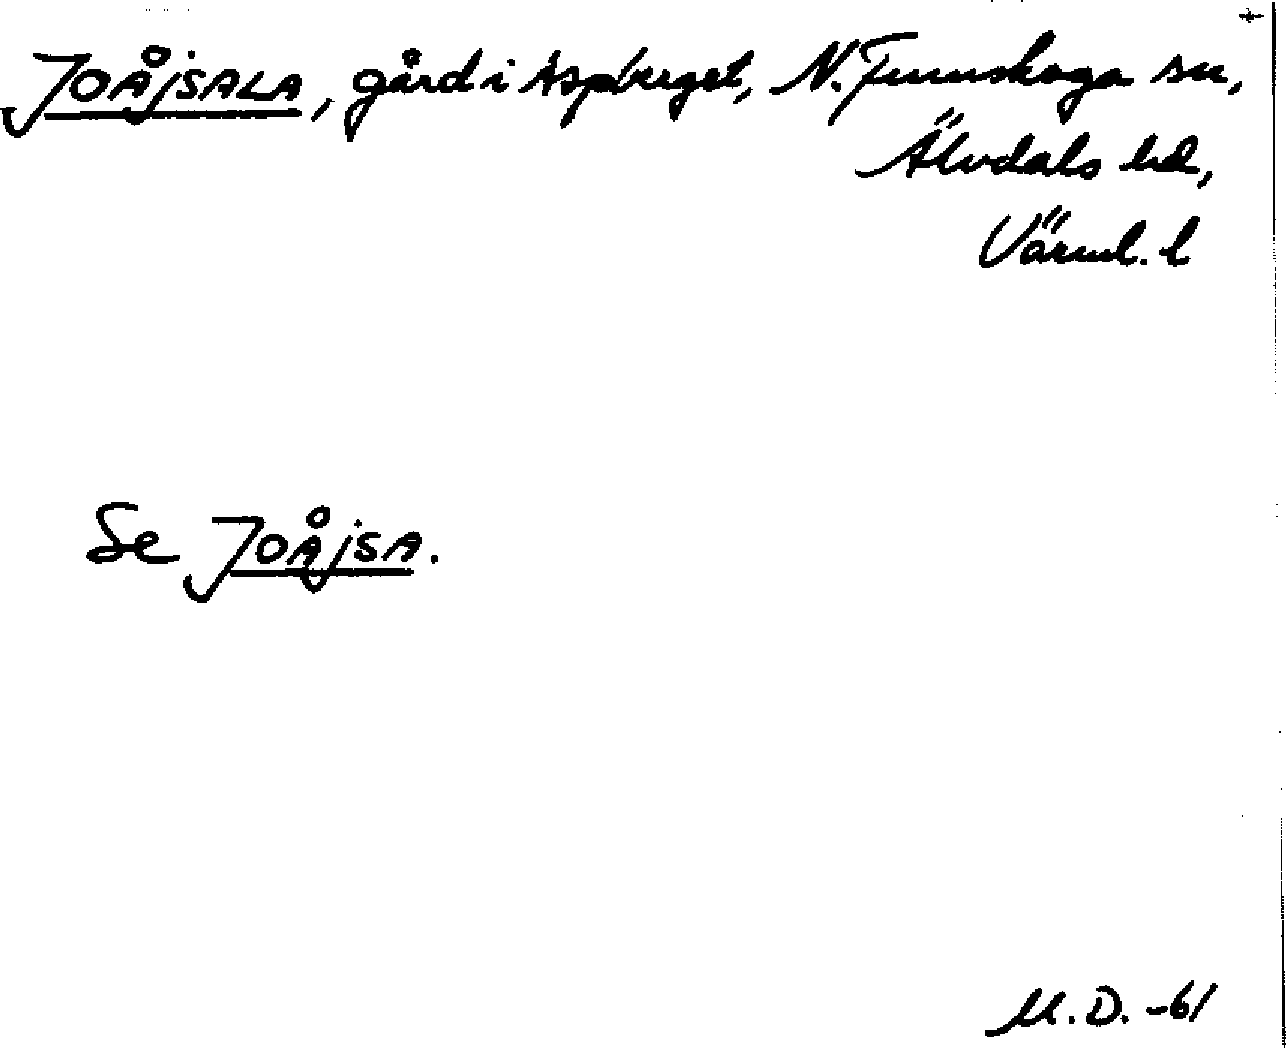 JOÅJSALA, gård i Aspberget, N. Finnskoga sn,
Älvdals hd,
Värml. l
Se JOÅJSA.
M.D. -61